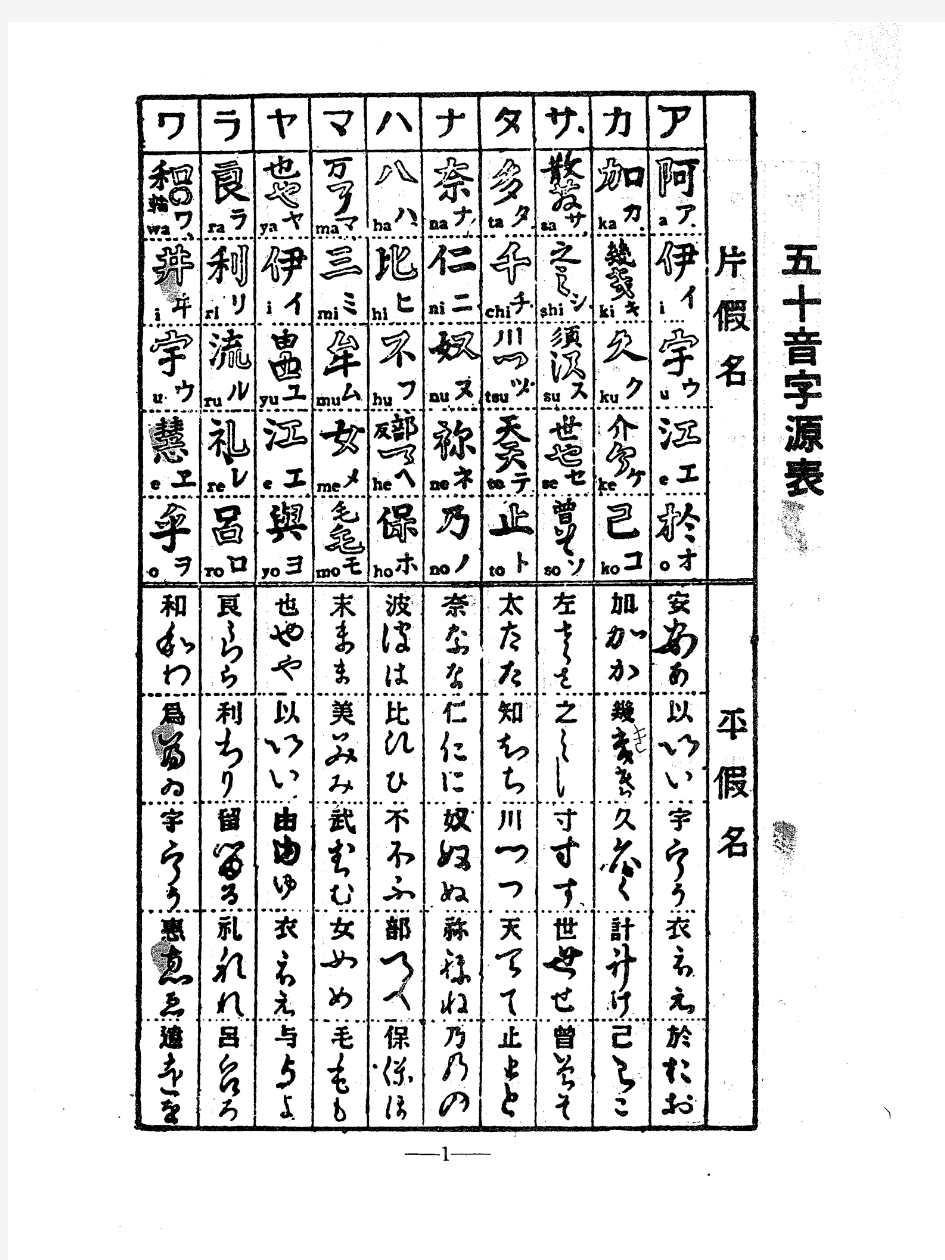 五十音字源表
片假名
平假名
ア
阿 a ア
伊 i イ
宇 u ウ
江 e エ
於 o オ
安 あ
以 い
宇 う
衣 え
於 お
カ
加 ka カ
幾 ki キ
久 ku ク
介 ke ケ
己 ko コ
加 か
幾 き
久 く
計 け
己 こ
サ
散 sa サ
之 shi シ
須 su ス
世 se セ
曽 so ソ
左 さ
之 し
寸 す
世 せ
曽 そ
タ
多 ta タ
千 chi チ
川 tsu ツ
天 te テ
止 to ト
太 た
知 ち
川 つ
天 て
止 と
ナ
奈 na ナ
仁 ni ニ
奴 nu ヌ
祢 ne ネ
乃 no ノ
奈 な
仁 に
奴 ぬ
祢 ね
乃 の
ハ
八 ha ハ
比 hi ヒ
不 hu フ
反部 he ヘ
保 ho ホ
波 は
比 ひ
不 ふ
部 へ
保 ほ
マ
万 ma マ
三 mi ミ
牟 mu ム
女 me メ
毛 mo モ
末 ま
美 み
武 む
女 め
毛 も
ヤ
也 ya ヤ
伊 i イ
由 yu ユ
江 e エ
與 yo ヨ
也 や
以 い
由 ゆ
衣 え
与 よ
ラ
良 ra ラ
利 ri リ
流 ru ル
礼 re レ
呂 ro ロ
良 ら
利 り
留 る
礼 れ
呂 ろ
ワ
和 輪 wa ワ
井 i ヰ
宇 u ウ
慧 e ヱ
乎 o ヲ
和 わ
爲 ゐ
宇 う
惠 ゑ
遠 を
—1—